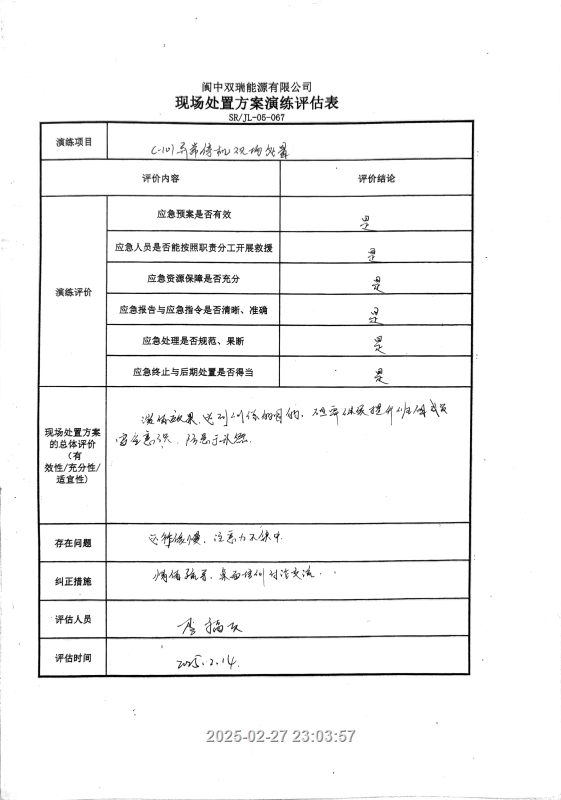 阆中双瑞能源有限公司
现场处置方案演练评估表
SR/JL-05-067
演练项目
C-101异常停机现场处置
评价内容 评价结论
演练评价
应急预案是否有效 是
应急人员是否能按照职责分工开展救援 是
应急资源保障是否充分 是
应急报告与应急指令是否清晰、准确 是
应急处理是否规范、果断 是
应急终止与后期处置是否得当 是
现场处置方案
的总体评价
(有
效性/充分性/
适宜性)
演练效果达到训练的目的,继续提升班组成员
安全意识,防患于未然.
存在问题
缓慢、注意力不集中.
纠正措施
桌面培训讨论交流.
评估人员
评估时间
2025.2.14.
2025-02-27 23:03:57